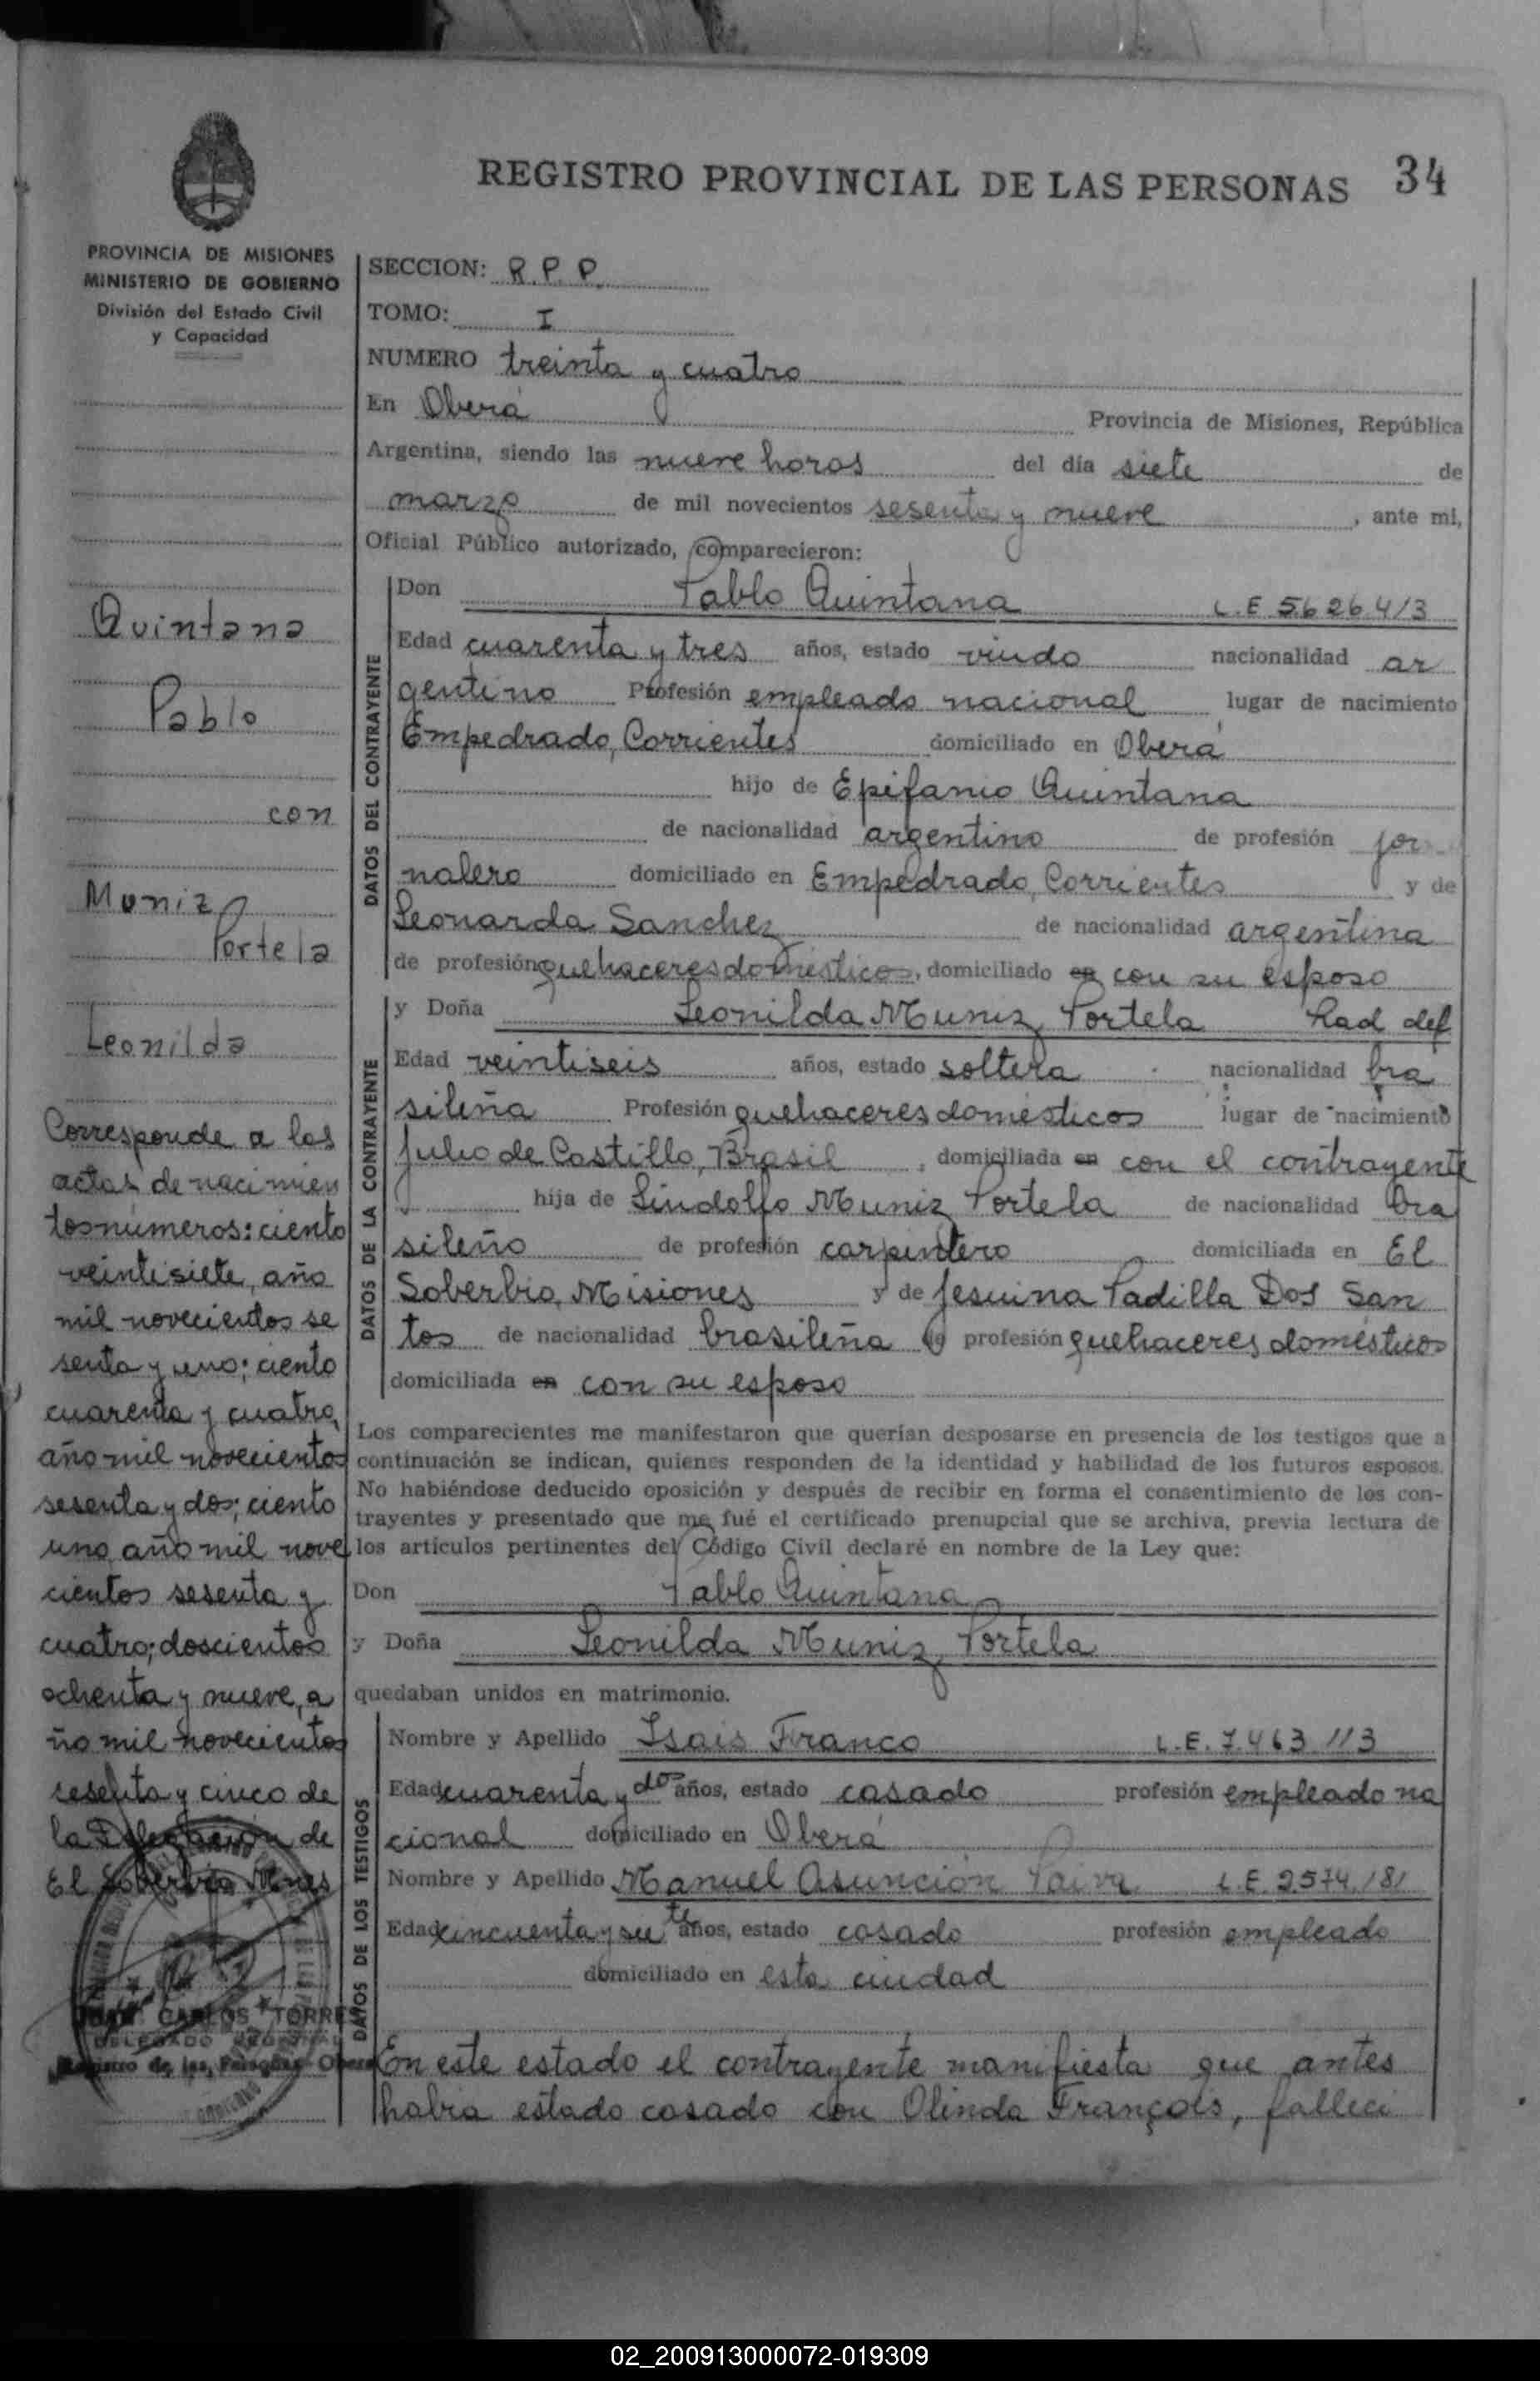 REGISTRO PROVINCIAL DE LAS PERSONAS 34
PROVINCIA DE MISIONES
MINISTERIO DE GOBIERNO
División del Estado Civil
y Capacidad
Quintana
Pablo
con
Muniz
Portela
Leonilda
Corresponde a las
actas de nacimien
tos números: ciento
veintisiete, año
mil novecientos se
senta y uno; ciento
cuarenta y cuatro,
año mil novecientos
sesenta y dos; ciento
uno, año mil nove
cientos sesenta y
cuatro; doscientos
ochenta y nueve, a
ño mil novecientos
sesenta y cinco de
la Delegación de
El Soberbio Mnes
CARLOS TORRES
DELEGADO
Registro de las Personas Oberá
SECCION: R.P.P.
TOMO: I
NUMERO treinta y cuatro
En Oberá Provincia de Misiones, República
Argentina, siendo las nueve horas del día siete de
marzo de mil novecientos sesenta y nueve, ante mi,
Oficial Público autorizado, comparecieron:
DATOS DEL CONTRAYENTE
Don Pablo Quintana L.E 5.626.413
Edad cuarenta y tres años, estado viudo nacionalidad ar
gentino Profesión empleado nacional lugar de nacimiento
Empedrado, Corrientes domiciliado en Oberá
hijo de Epifanio Quintana
de nacionalidad argentino de profesión jor
nalero domiciliado en Empedrado, Corrientes y de
Leonarda Sanchez de nacionalidad argentina
de profesión quehaceres domésticos, domiciliado en con su esposo
DATOS DE LA CONTRAYENTE
y Doña Leonilda Muniz Portela Rad def
Edad veintiseis años, estado soltera nacionalidad bra
sileña Profesión quehaceres domésticos lugar de nacimiento
Julio de Castillo, Brasil, domiciliada en con el contrayente
hija de Lindolfo Muniz Portela de nacionalidad bra
sileño de profesión carpintero domiciliada en El
Soberbio, Misiones y de Jesuina Padilla Dos San
tos de nacionalidad brasileña de profesión quehaceres domésticos
domiciliada en con su esposo
Los comparecientes me manifestaron que querían desposarse en presencia de los testigos que a
continuación se indican, quienes responden de la identidad y habilidad de los futuros esposos.
No habiéndose deducido oposición y después de recibir en forma el consentimiento de los con-
trayentes y presentado que me fué el certificado prenupcial que se archiva, previa lectura de
los artículos pertinentes del Código Civil declaré en nombre de la Ley que:
Don Pablo Quintana
y Doña Leonilda Muniz Portela
quedaban unidos en matrimonio.
DATOS DE LOS TESTIGOS
Nombre y Apellido Isais Franco L.E. 7.463.113
Edad cuarenta y dos años, estado casado profesión empleado na
cional domiciliado en Oberá
Nombre y Apellido Manuel Asunción Paiva L.E. 2.574.181
Edad cincuenta y siete años, estado casado profesión empleado
domiciliado en esta ciudad
En este estado el contrayente manifiesta que antes
habia estado casado con Olinda François, falleci
02_200913000072-019309